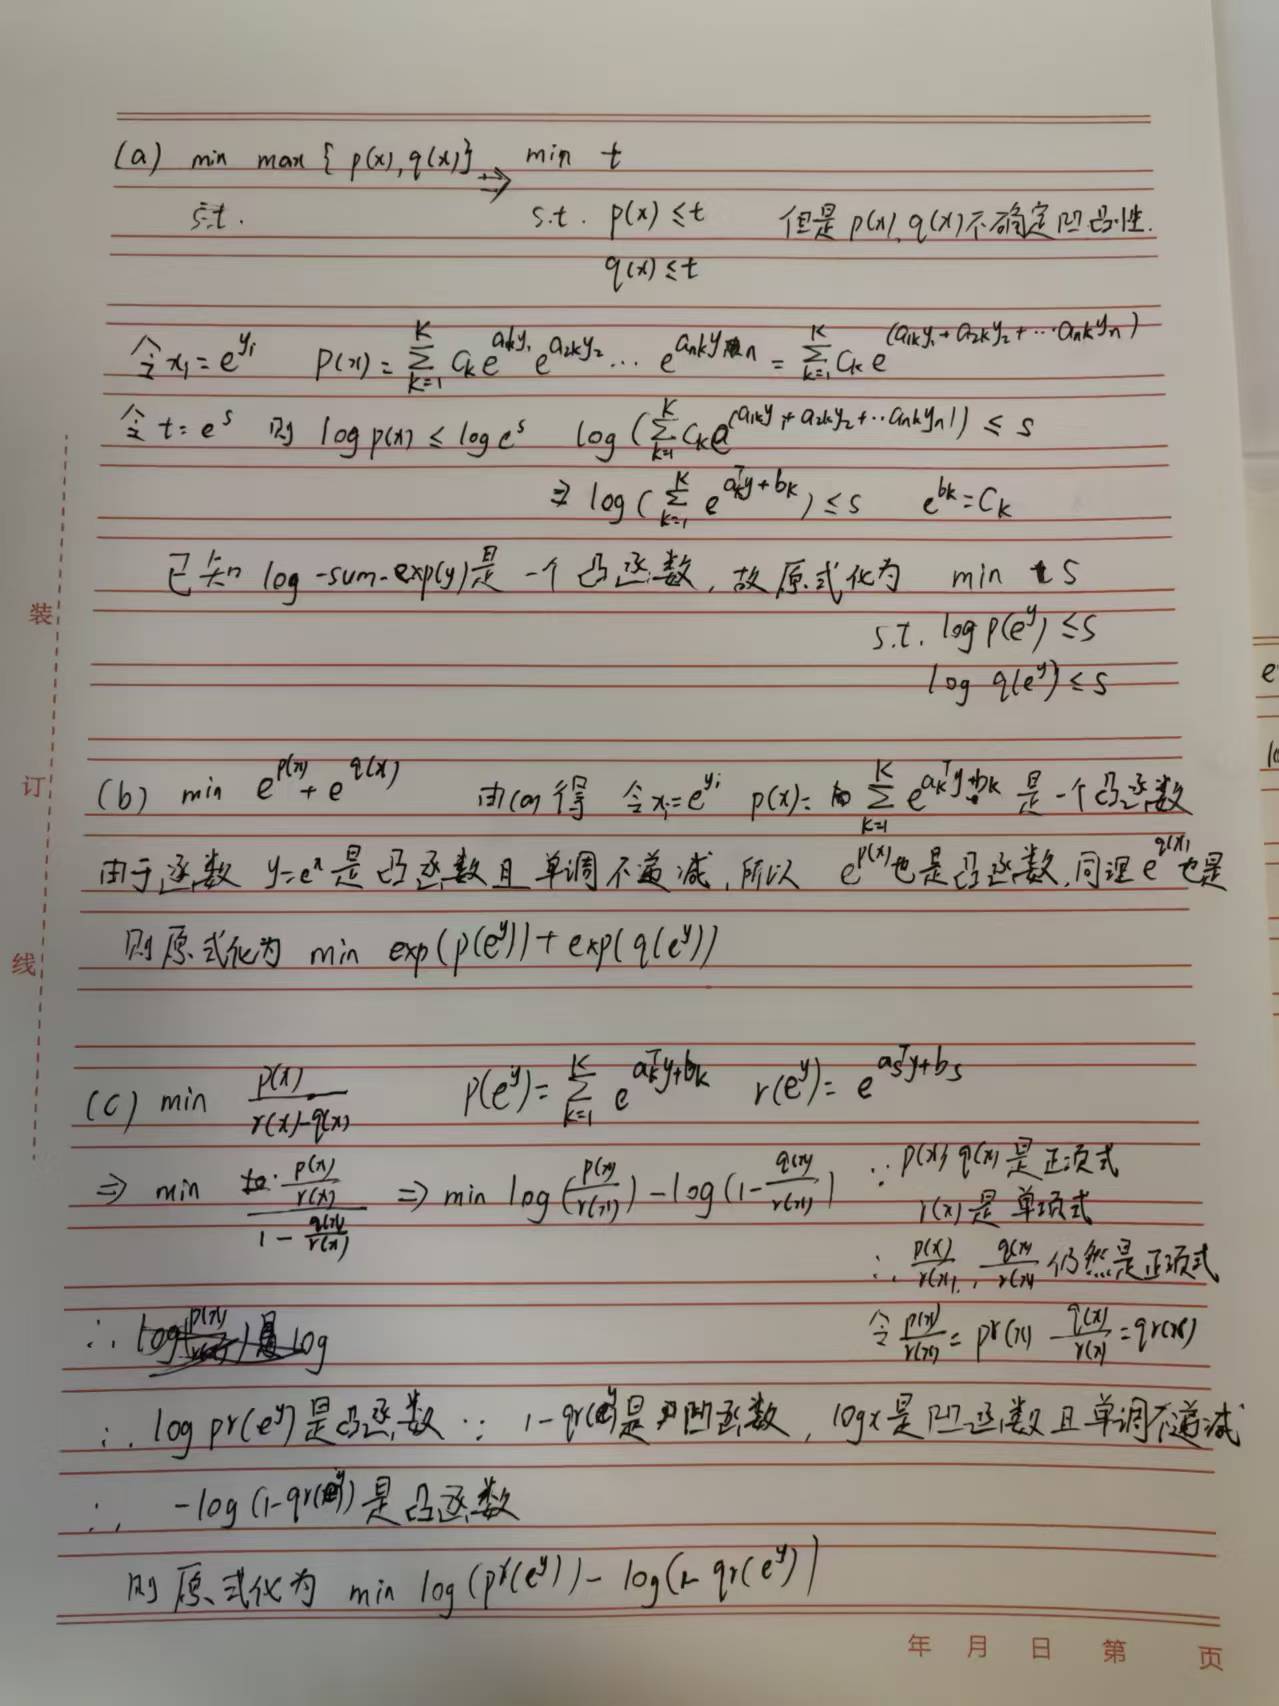 (a) min max { p(x), q(x)} ⇒ min t
s.t. s.t. p(x) ≤ t 但是 p(x), q(x) 不确定凹凸性.
q(x) ≤ t
令 x_i = e^{y_i} P(x) = \sum_{k=1}^{K} C_k e^{a_{1k}y_1} e^{a_{2k}y_2} ... e^{a_{nk}y_n} = \sum_{k=1}^{K} C_k e^{(a_{1k}y_1 + a_{2k}y_2 + ... a_{nk}y_n)}
令 t = e^s 则 log p(x) ≤ log e^s log (\sum_{k=1}^{K} C_k e^{(a_{1k}y_1 + a_{2k}y_2 + ... a_{nk}y_n)}) ≤ s
⇒ log (\sum_{k=1}^{K} e^{a_k^T y + b_k}) ≤ s e^{b_k} = C_k
已知 log-sum-exp(y) 是一个凸函数, 故原式化为 min s
s.t. log p(e^y) ≤ s
log q(e^y) ≤ s
(b) min e^{p(x)} + e^{q(x)} 由(a)得 令 x_i = e^{y_i} p(x) = \sum_{k=1}^{K} e^{a_k^T y + b_k} 是一个凸函数
由于函数 y=e^x 是凸函数且单调不递减, 所以 e^{p(x)} 也是凸函数, 同理 e^{q(x)} 也是
则原式化为 min exp(p(e^y)) + exp(q(e^y))
(c) min \frac{p(x)}{r(x)-q(x)} p(e^y) = \sum_{k=1}^{K} e^{a_k^T y + b_k} r(e^y) = e^{a_s^T y + b_s}
⇒ min \frac{\frac{p(x)}{r(x)}}{1 - \frac{q(x)}{r(x)}} ⇒ min log(\frac{p(x)}{r(x)}) - log(1 - \frac{q(x)}{r(x)}) ∵ p(x), q(x) 是正项式
r(x) 是单项式
∴ \frac{p(x)}{r(x)}, \frac{q(x)}{r(x)} 仍然是正项式
∴ log 令 \frac{p(x)}{r(x)} = pr(x) \frac{q(x)}{r(x)} = qr(x)
∴ log pr(e^y) 是凸函数 ∵ 1-qr(e^y) 是凹函数, log x 是凹函数且单调不递减
∴ -log (1-qr(e^y)) 是凸函数
则原式化为 min log (pr(e^y)) - log(1- qr(e^y))
装
订
线
年 月 日 第 页